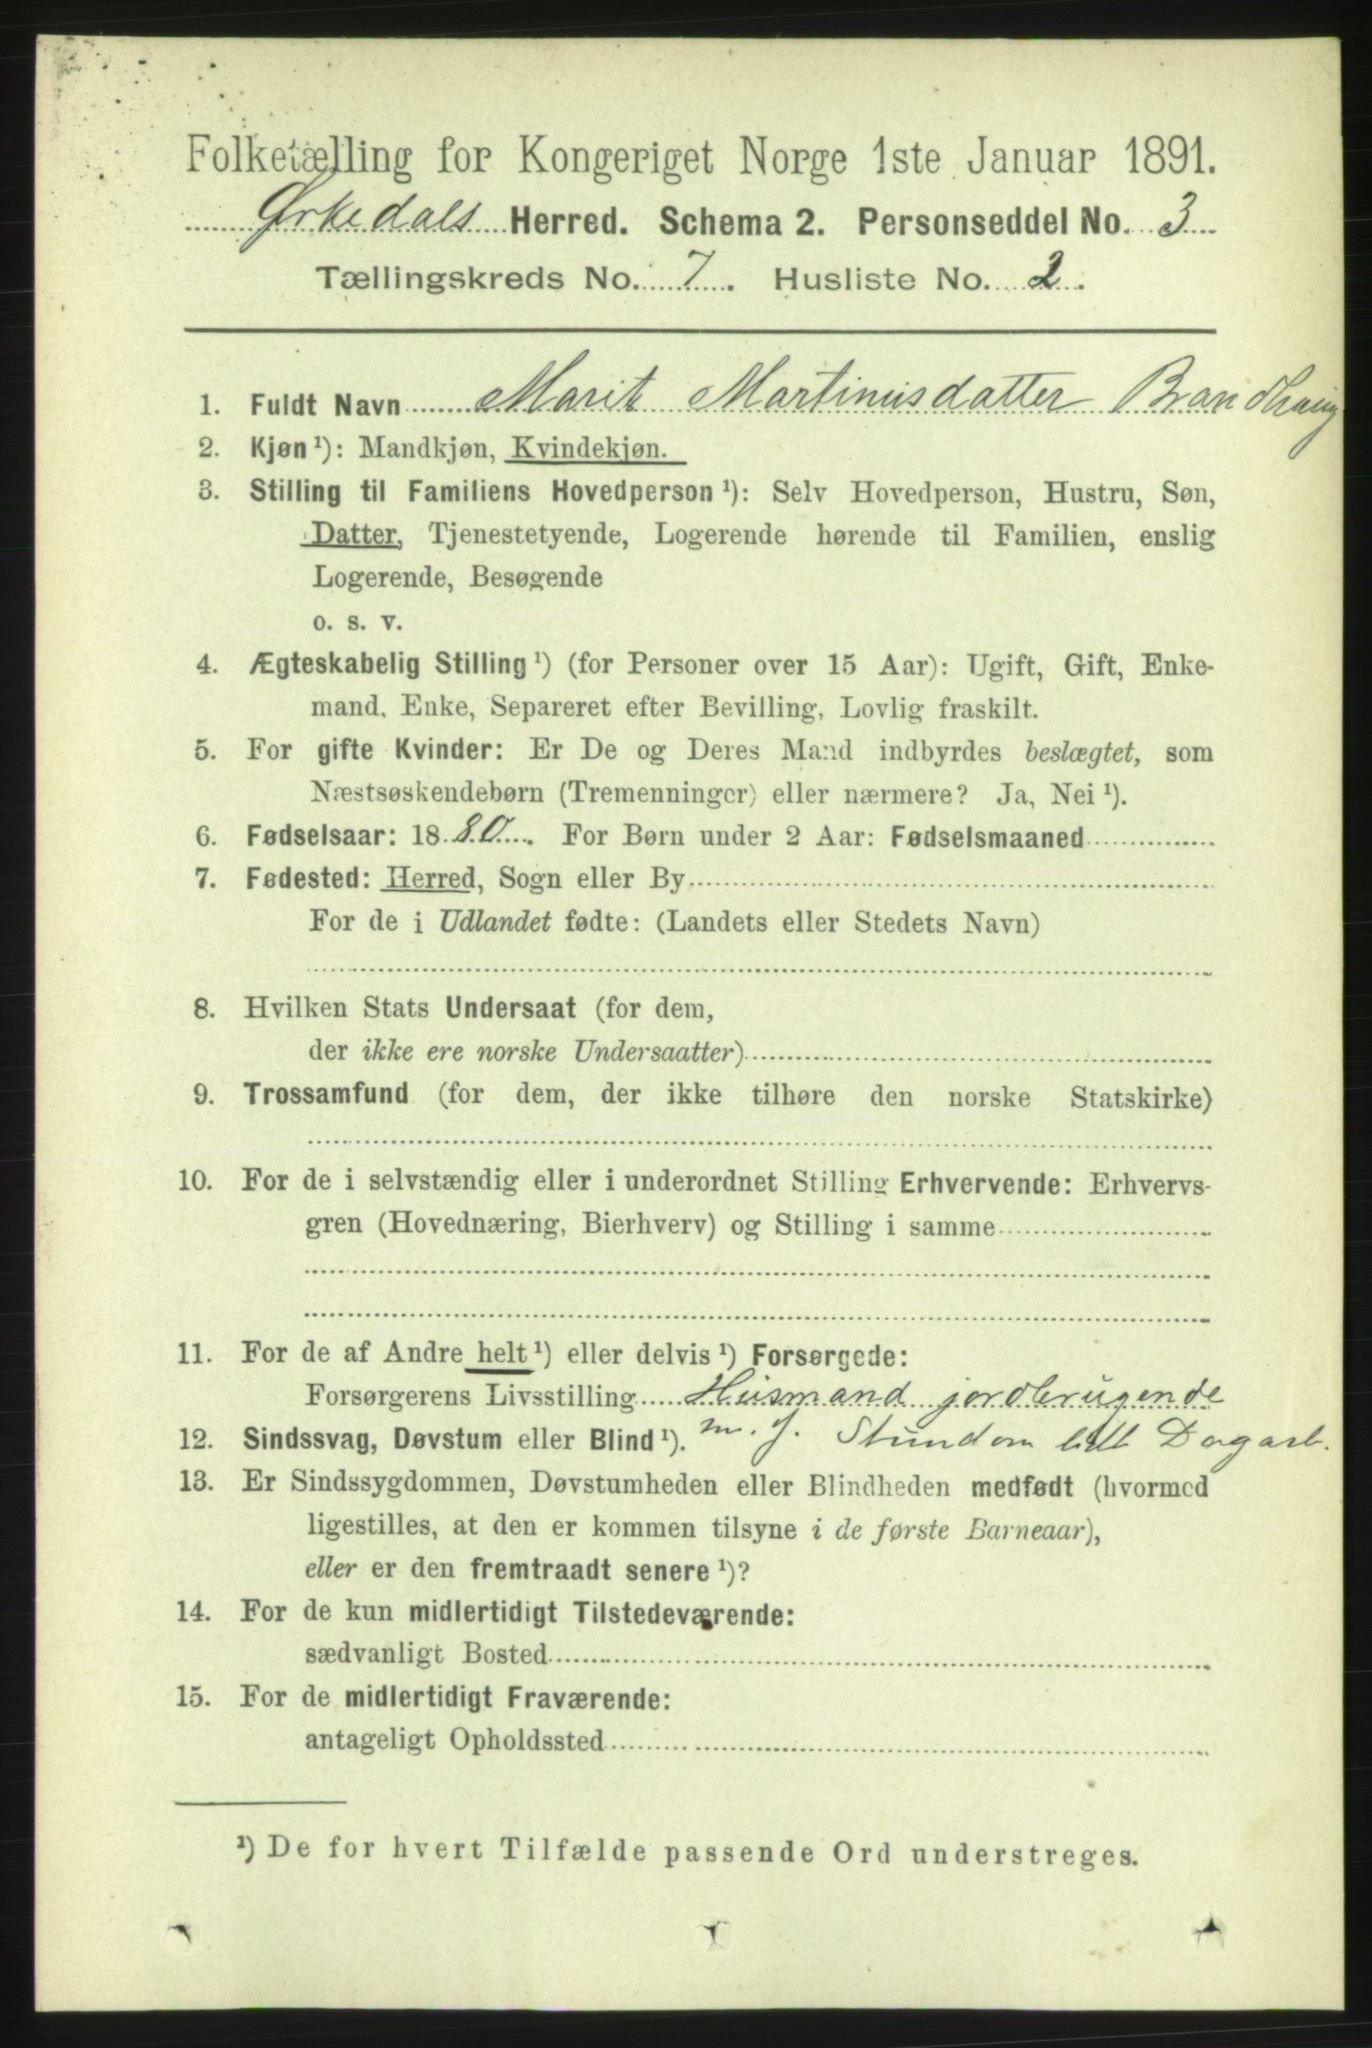 Folketælling for Kongeriget Norge 1ste Januar 1891.
Ørkedals Herred. Schema 2. Personseddel No. 3
Tællingskreds No. 7. Husliste No. 2.
1. Fuldt Navn Marit Martinusdatter Brandhaug
2. Kjøn ¹): Mandkjøn, Kvindekjøn.
3. Stilling til Familiens Hovedperson ¹): Selv Hovedperson, Hustru, Søn,
Datter, Tjenestetyende, Logerende hørende til Familien, enslig
Logerende, Besøgende
o. s. v.
4. Ægteskabelig Stilling ¹) (for Personer over 15 Aar): Ugift, Gift, Enke-
mand, Enke, Separeret efter Bevilling, Lovlig fraskilt.
5. For gifte Kvinder: Er De og Deres Mand indbyrdes beslægtet, som
Næstsøskendebørn (Tremenninger) eller nærmere? Ja, Nei ¹).
6. Fødselsaar: 1880. For Børn under 2 Aar: Fødselsmaaned
7. Fødested: Herred, Sogn eller By
For de i Udlandet fødte: (Landets eller Stedets Navn)
8. Hvilken Stats Undersaat (for dem,
der ikke ere norske Undersaatter)
9. Trossamfund (for dem, der ikke tilhøre den norske Statskirke)
10. For de i selvstændig eller i underordnet Stilling Erhvervende: Erhvervs-
gren (Hovednæring, Bierhverv) og Stilling i samme
11. For de af Andre helt ¹) eller delvis ¹) Forsørgede:
Forsørgerens Livsstilling Husmand jordbrugende
12. Sindssvag, Døvstum eller Blind ¹). m. J. Stundom lidt Dagarb.
13. Er Sindssygdommen, Døvstumheden eller Blindheden medfødt (hvormed
ligestilles, at den er kommen tilsyne i de første Barneaar),
eller er den fremtraadt senere ¹)?
14. For de kun midlertidigt Tilstedeværende:
sædvanligt Bosted
15. For de midlertidigt Fraværende:
antageligt Opholdssted
¹) De for hvert Tilfælde passende Ord understreges.